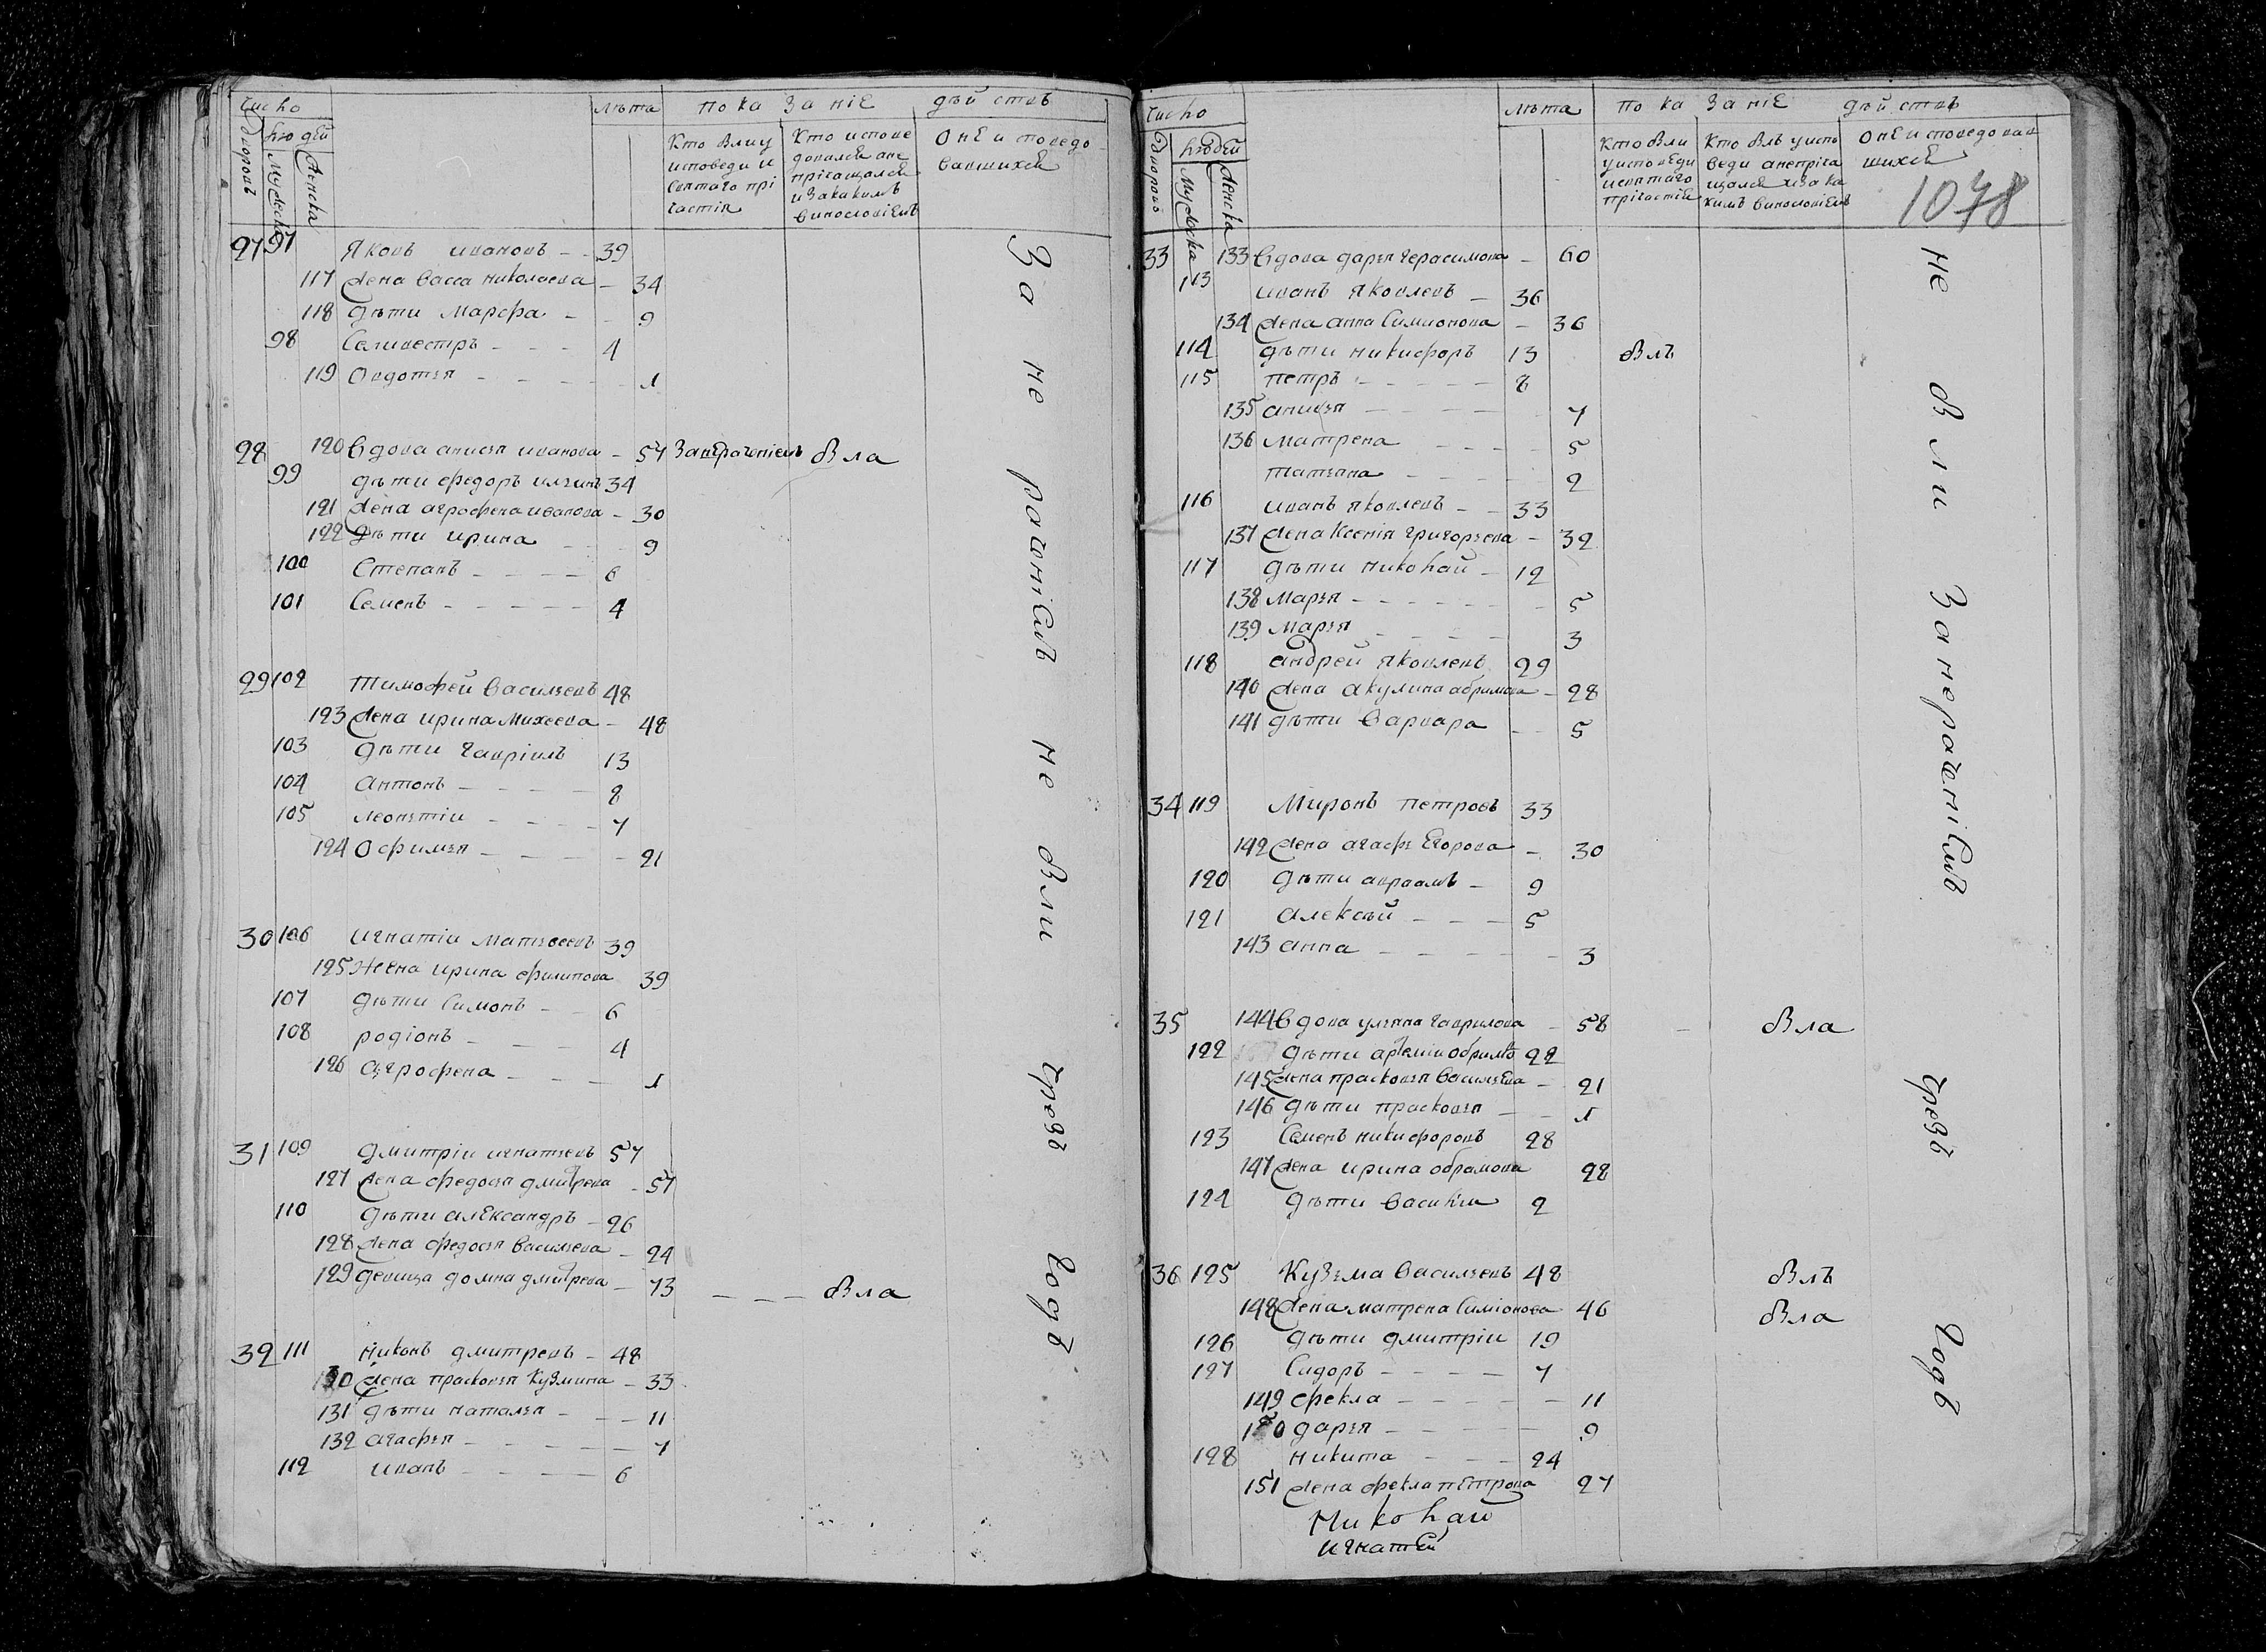 число
лѣта
показаніе
дѣйствъ
дворовъ
людей
мужеска
женска
Кто былиу исповеди и святаго прі частія
Кто испове довался ане пріїащался изакакимъ винословіемъ
Оне и споведо вавшихся
27 97 Яковъ ивановъ 39
117 жена васса николаева 34
118 дѣти Марфа 9
98 Селивестръ 4
119 Овдотья 1
28 120 вдова анисья иванова 57 Занерачениемъ была
99 дѣти федоръ ильинъ 34
121 жена аграфена иванова 30
122 дѣти ирина 9
100 Степанъ 6
101 Семенъ 4
29 102 тимофей васильевъ 48
123 жена ирина Михеева 48
103 дѣти гавріилъ 13
104 антонъ 8
105 леонътіи 7
124 Офимья 21
30 106 игнатіи матвеевъ 39
125 жена ирина филипова 39
107 дѣти Симонъ 6
108 родіонъ 4
126 аграфена 1
31 109 дмитріи игнатьевъ 57
127 жена федосья дмитрева 57
110 дѣти александръ 26
128 жена федосья васильева 24
129 девица домна дмитрева 73 была
32 111 никонъ дмитревъ 48
130 жена прасковья кузмина 33
131 дѣти наталья 11
132 агафья 7
112 иванъ 6
За не раченіемъ не были чрезъ годъ
число
лѣта
показаніе
дѣй ствъ
дворовъ
людей
мужеска
женска
кто бли уисповеди исвятаго причастія
Кто былъ уиспо веди анепріча щался иза ка кимъ винословіемъ
Оне исповедовав шихся
1078
33 133 вдова дарья герасимова 60
113 иванъ яковлевъ 36
134 жена анна Симионова 36
114 дѣти никифоръ 13 былъ
115 петръ 8
135 анисья 7
136 матрена 5
татьяна 2
116 иванъ яковлевъ 33
137 жена ксенія григорьева 32
117 дѣти николай 12
138 Марья 5
139 Марья 3
118 андрей яковлевъ 29
140 жена акулина абрамова 28
141 дѣти варвара 5
34 119 Миронъ петровъ 33
142 жена агафь егорова 30
120 дѣти авраамъ 9
121 алексѣй 5
143 анна 3
35 144 вдова ульяна гаврилова 58 была
122 дѣти артемии обрамо 22
145 жена прасковья васильева 21
146 дѣти прасковья 1
123 Семенъ никифоровъ 28
147 жена ирина обрамова 28
124 дѣти василіи 2
36 125 Кузьма васильевъ 48 былъ
148 жена матрена Симіонова 46 была
126 дѣти дмитріи 19
127 Сидоръ 7
149 фекла 11
150 дарья 9
128 никита 24
151 жена фекла петрова 27
николай
игнатей
не были Занераченіемъ чрезъ годъ